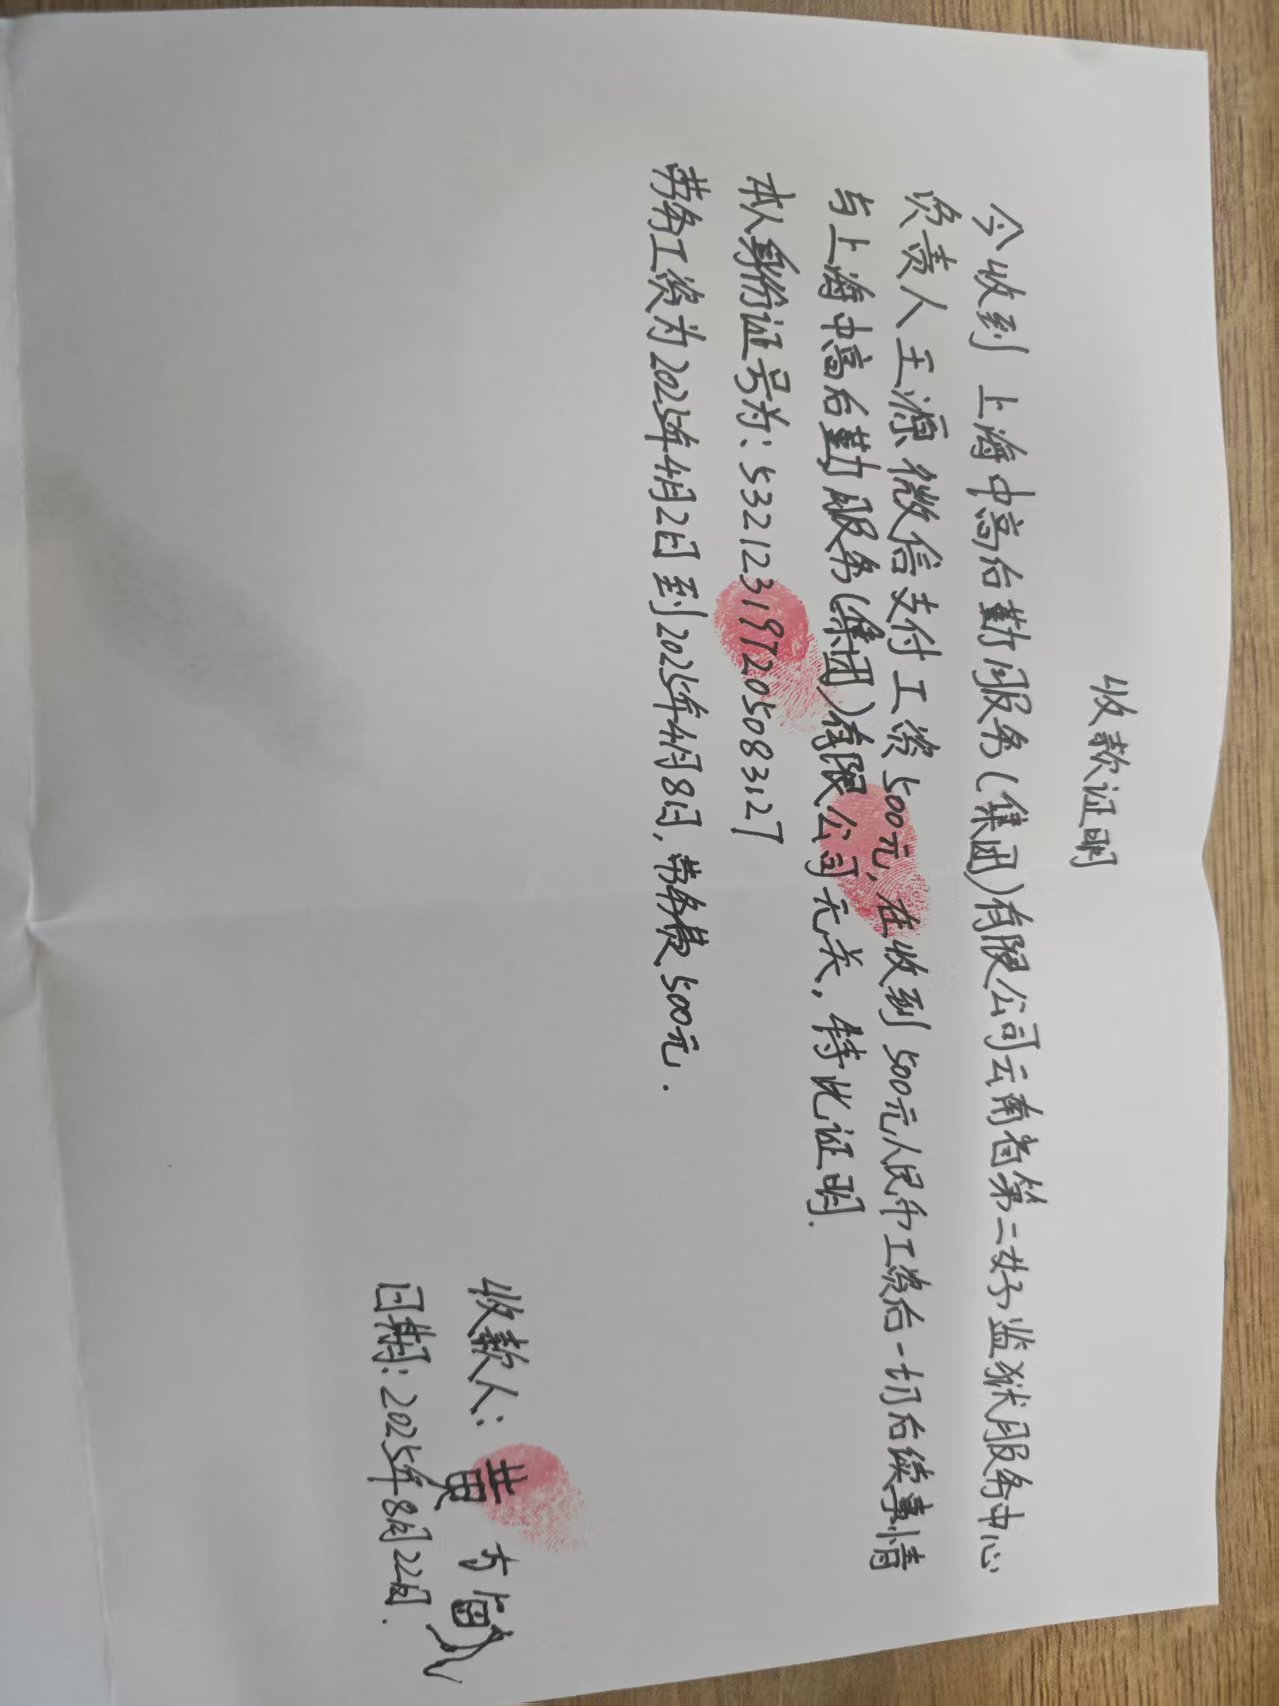 收款证明
今收到上海中高后勤服务(集团)有限公司云南省第二女子监狱服务中心
负责人王源微信支付工资500元,在收到500元人民币工资后一切后续事情
与上海中高后勤服务(集团)有限公司无关,特此证明.
本人身份证号为:532123197205083127
劳务工资为2025年4月2日到2025年4月8日,劳务费500元.
收款人:黄
日期:2025年8月22日.